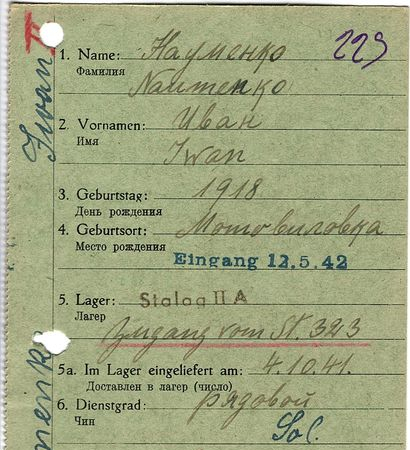 II
229
1. Name: Науменко
Фамилия
Naumenko
2. Vornamen: Иван
Имя
Iwan
3. Geburtstag: 1918
День рождения
4. Geburtsort: Мотовиловка
Место рождения
Eingang 12.5.42
5. Lager: Stalag II A
Лагер
Zugang vom St. 323
5a. Im Lager eingeliefert am: 4.10.41.
Доставлен в лагер (число)
6. Dienstgrad: рядовой
Чин
Sol.
Iwan